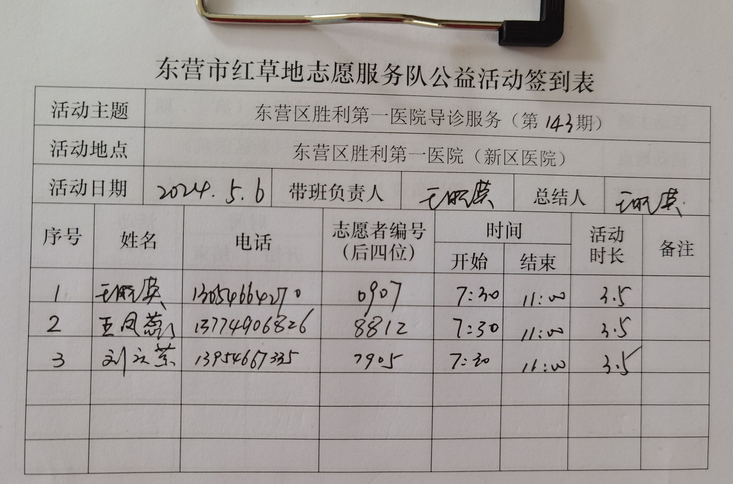 东营市红草地志愿服务队公益活动签到表
活动主题 东营区胜利第一医院导诊服务（第143期）
活动地点 东营区胜利第一医院（新区医院）
活动日期 2024.5.6 带班负责人 王晓英 总结人 王晓英
序号 姓名 电话 志愿者编号（后四位） 时间 开始 结束 活动时长 备注
1 王晓英 13054664270 0907 7:30 11:00 3.5
2 王凤 13774906826 8812 7:30 11:00 3.5
3 刘立荣 13954667335 7905 7:30 11:00 3.5